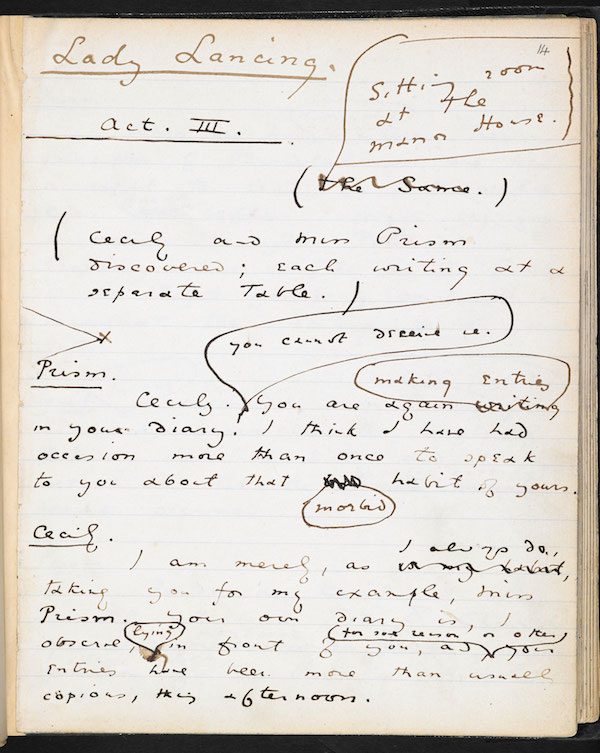 14
Lady Lancing.
Sitting room
at the
Manor House.
Act. III.
(The Same.)
(Cecily and Miss Prism
discovered; each writing at a
separate Table.)
x
you cannot deceive me.
Prism.
making entries
Cecily. You are again writing
in your diary. I think I have had
occasion more than once to speak
to you about that habit of yours.
morbid
Cecily.
I always do,
I am merely, as is my habit,
taking you for my example, Miss
Prism. Your own diary is, I
lying (for some reason or other)
observe, in front of you, and your
entries have been more than usually
copious, this afternoon.